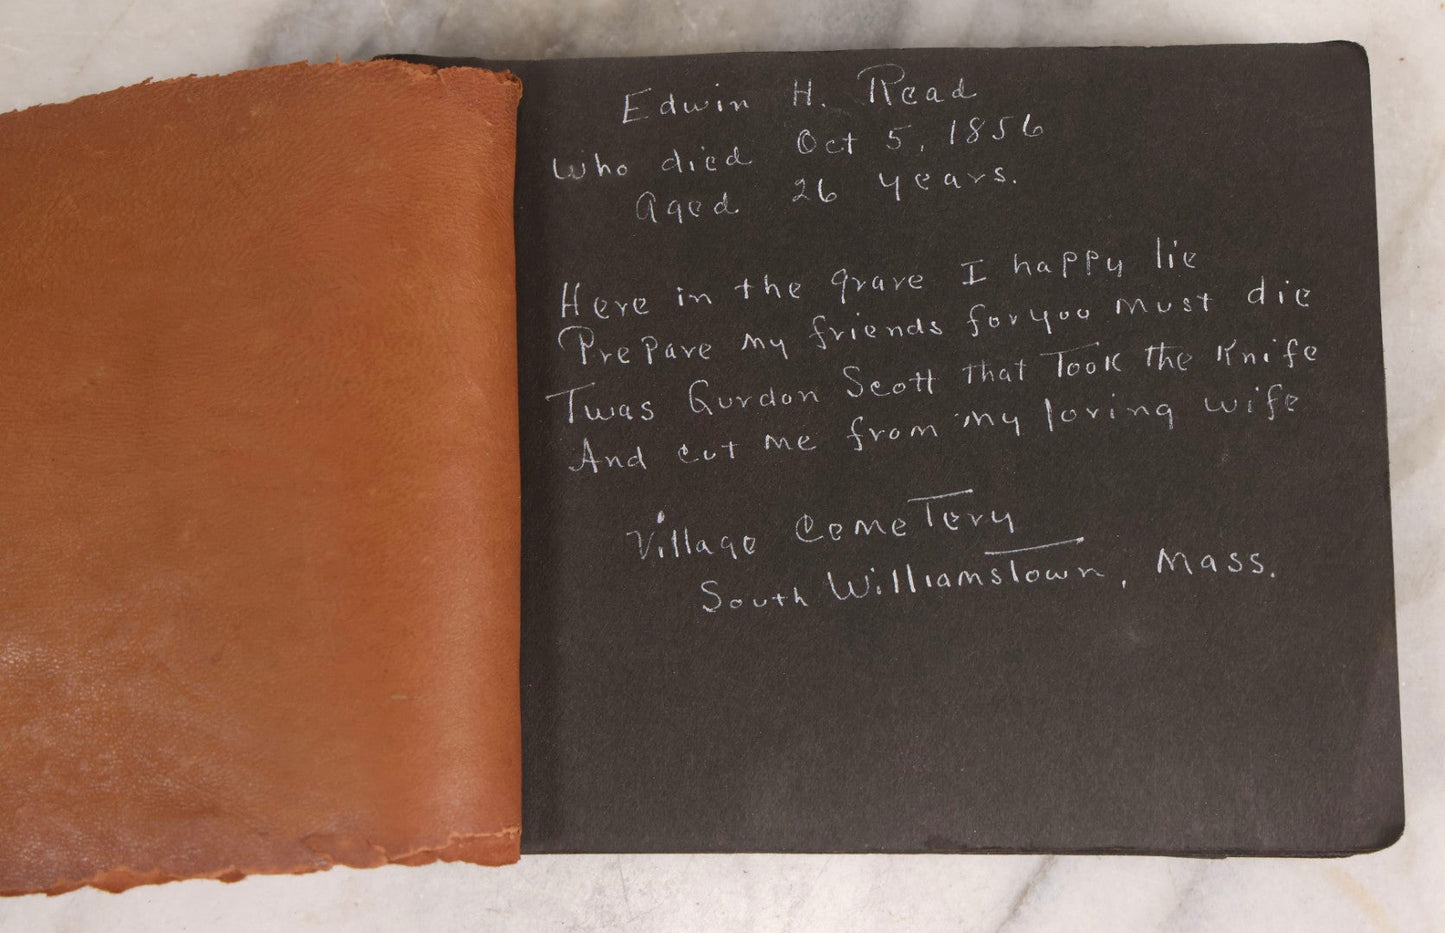 Edwin H. Read
Who died Oct 5, 1856
Aged 26 years.
Here in the grave I happy lie
Prepare my friends for you must die
Twas Gurdon Scott that Took the Knife
And cut me from my loving wife
Village Cemetery
South Williamstown, Mass.